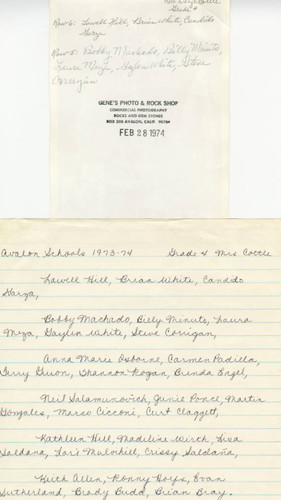 Grade 4
Row 6: Lowell Hill, Brian White, Candido
Garza
Row 5: Bobby Machado, Billy Minute,
Laura Meza, Gaylin White, Steve
Corrigan
GENE'S PHOTO & ROCK SHOP
COMMERCIAL PHOTOGRAPHY
ROCKS AND GEM STONES
BOX AVALON, CALIF. 90704
FEB 28 1974
Avalon Schools 1973-74 Grade 4 Mrs Cottle
Lowell Hill, Brian White, Candido
Garza,
Bobby Machado, Billy Minute, Laura
Meza, Gaylin White, Steve Corrigan,
Anna Marie Osborne, Carmen Padilla,
Terry Guion, Shannon Hogan, Brenda Engel,
Neil Salamunovich, Junie Ponce, Martin
Gonzales, Marco Cicconi, Curt Claggett,
Kathleen Hill, Madeline Wirch, Lisa
Saldana, Lori Mulvihill, Crissy Saldaña,
Keith Allen, Ronny Evan
Sutherland, Brady Budd, Brian Bray